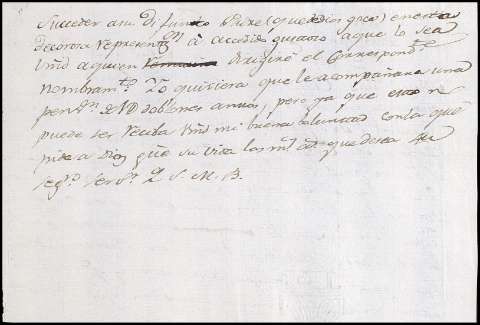 suceder a su Difunto Padre (que de Dios goce) en esta
decorosa representon. à accedido gustoso a que lo sea
Vmd a quien dirigiré el Correspondte.
nombramto. Yo quisiera que le acompañara una
penson. de doblones anuos, pero ya que esto no
puede ser reciba Vmd mi buena boluntad con la que
pide a Dios gue. su vida los ms. as. que desea su
sego. servor. Q. S. M. B.